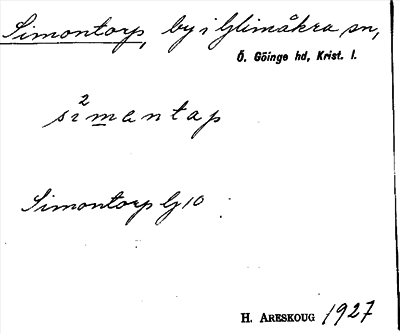 Simontorp, by i Glimåkra sn,
Ö. Göinge hd, Krist. l.
si²mantap
Simontorp Gj 10
H. ARESKOUG 1927